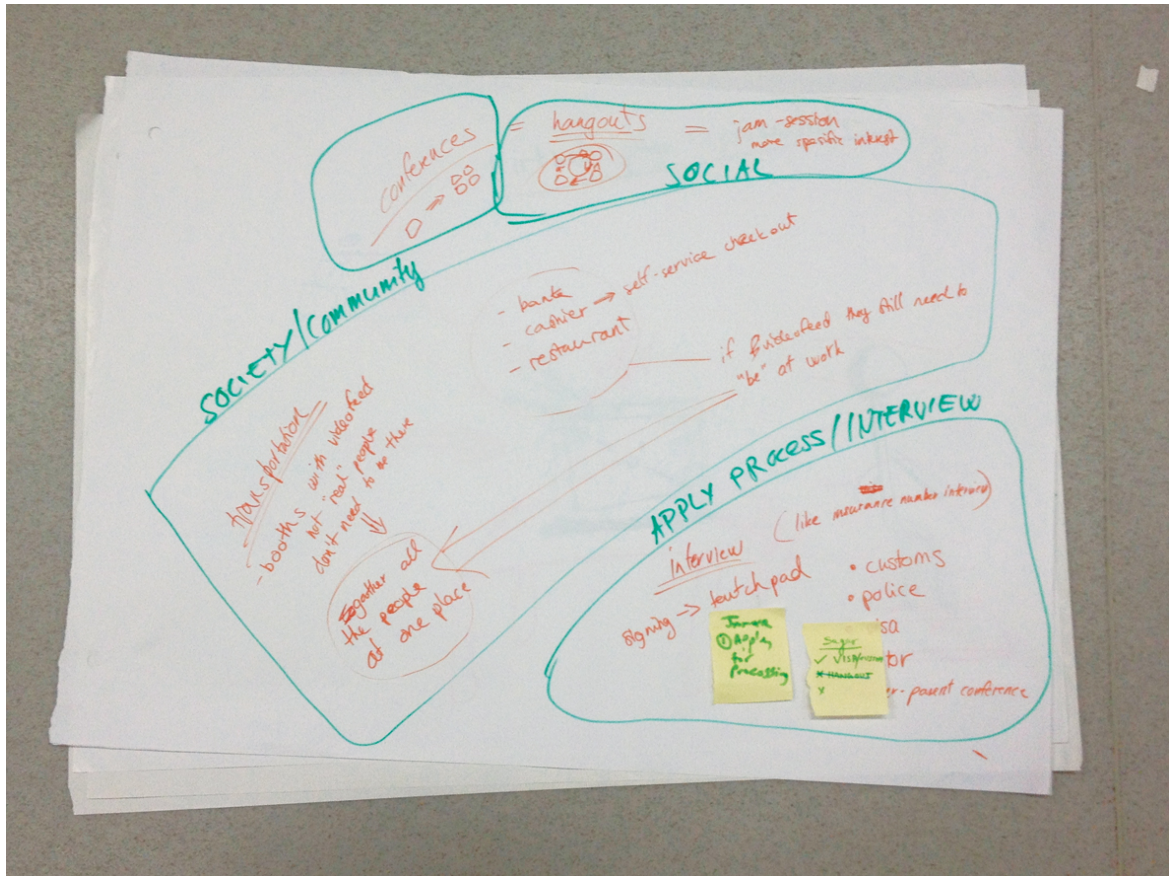 conferences
= hangouts = jam-session
more spesific interest
SOCIAL
SOCIETY/COMMUNITY
- bank
- cashier → self-service checkout
- restaurant
if videofeed they still need to
"be" at work
transportation
- booths with videofeed
not "real" people
don't need to be there
gather all
the people
at one place
APPLY PROCESS/INTERVIEW
(like insurance number interview)
interview
signing → toutchpad
• customs
• police
isa
tor
er-parent conference
① Apply
for
Processing
✓ VISA/
x HANGOUT
x